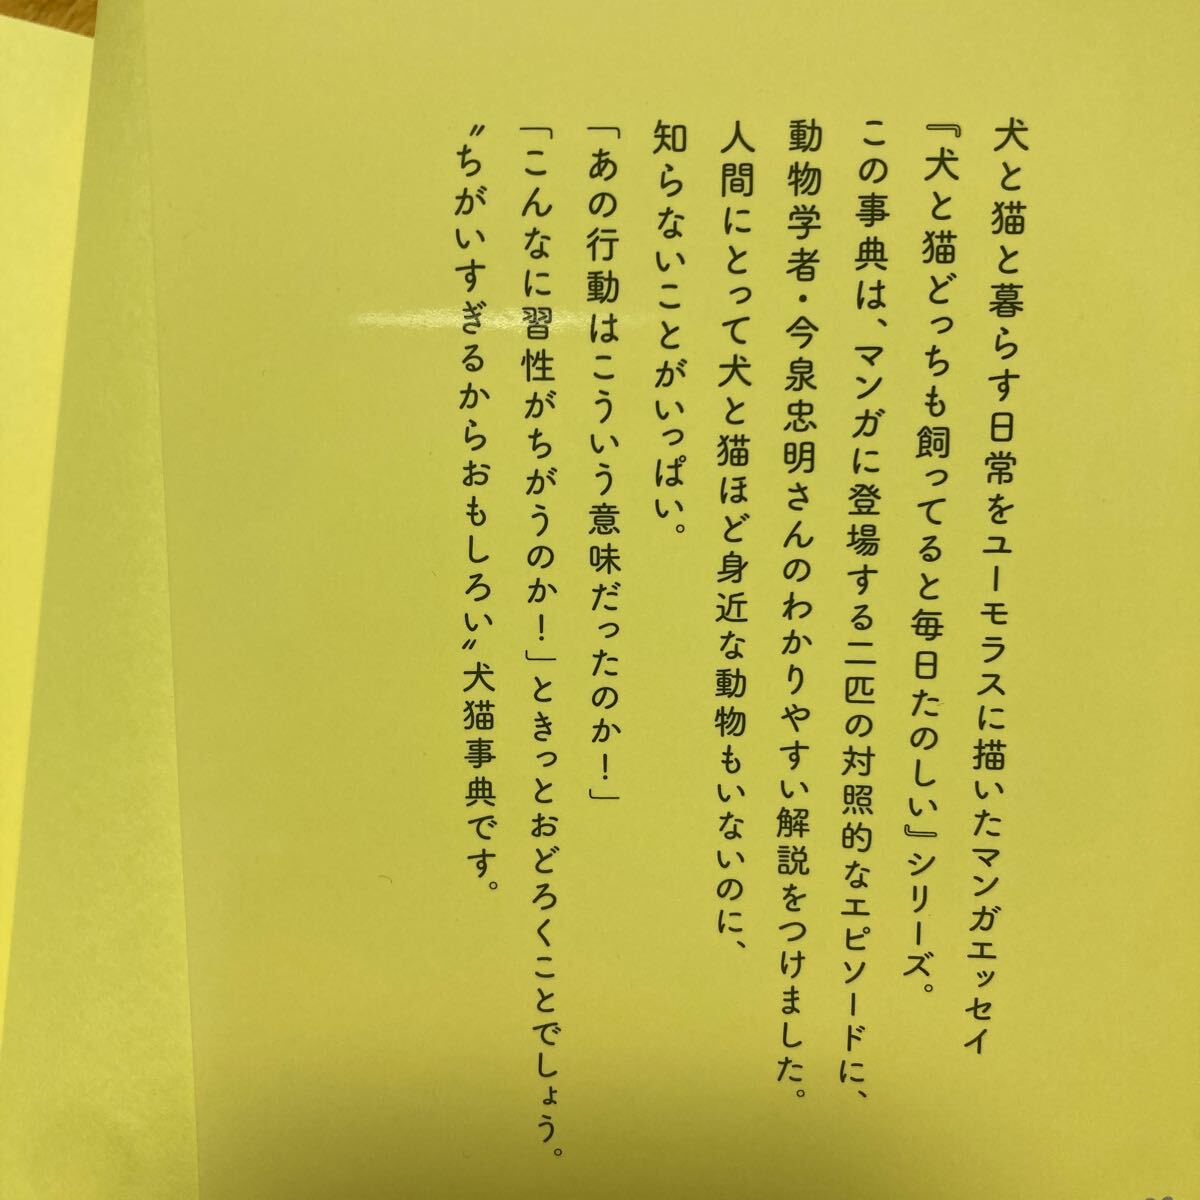 犬と猫と暮らす日常をユーモラスに描いたマンガエッセイ
『犬と猫どっちも飼ってると毎日たのしい』シリーズ。
この事典は、マンガに登場する二匹の対照的なエピソードに、
動物学者・今泉忠明さんのわかりやすい解説をつけました。
人間にとって犬と猫ほど身近な動物もいないのに、
知らないことがいっぱい。
「あの行動はこういう意味だったのか！」
「こんなに習性がちがうのか！」ときっとおどろくことでしょう。
〝ちがいすぎるからおもしろい〟犬猫事典です。